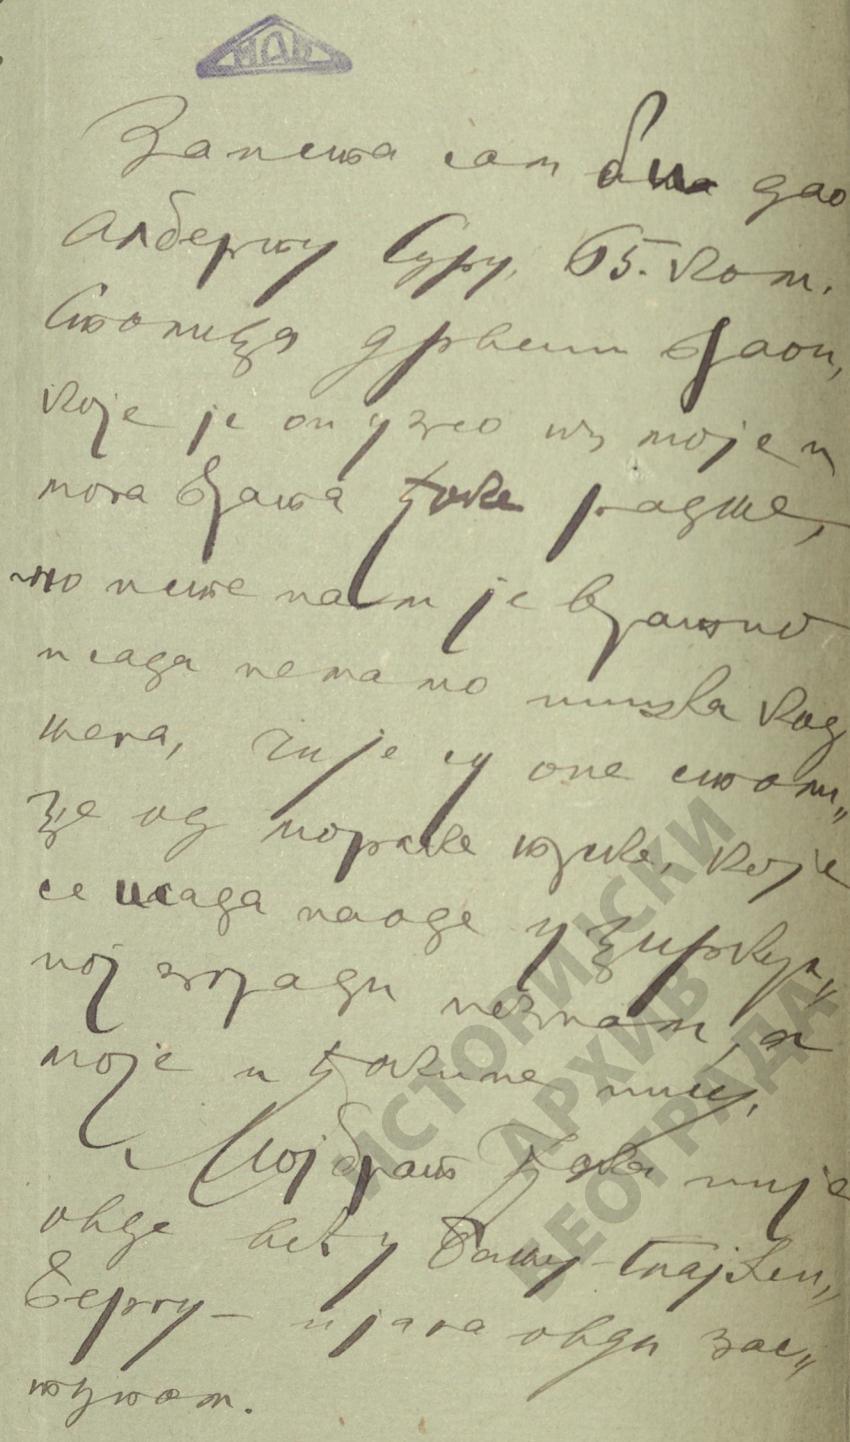 ИАБ
Заиста сам био дао
Алберту Суру, 65. ком.
Столица дрвени браон,
које је он узео из моје и
мога брата Ђоке радње,
но исте нам је вратио
и сада немамо ништа код
њега, чије су оне столи„
це од морске трске, које
се и сада наоде у циркус„
ној згради незнам, а
моје и Ђокине нису,
Мој брат Ђока није
овде већ у Бачу-Пајкен„
бергу – и ја га овди зас„
тупам.
ИСТОРИЈСКИ
АРХИВ
БЕОГРАДА